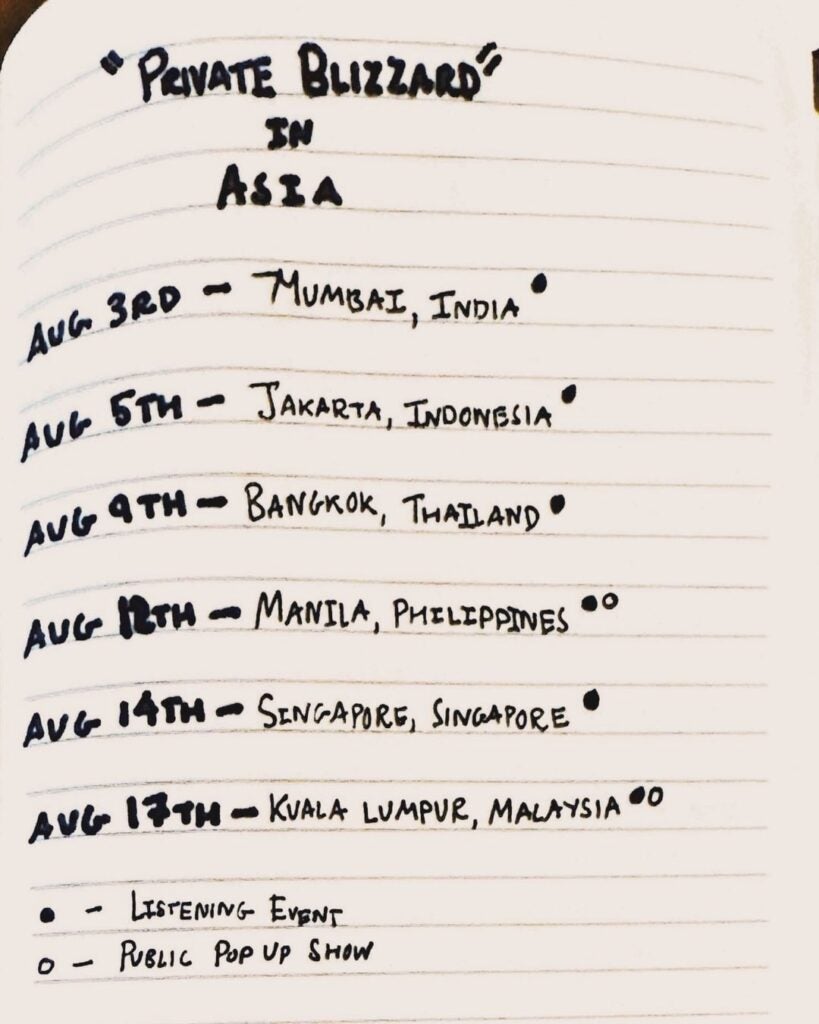 "PRIVATE BLIZZARD"
IN
ASIA
AUG 3RD - MUMBAI, INDIA ●
AUG 5TH - JAKARTA, INDONESIA ●
AUG 9TH - BANGKOK, THAILAND ●
AUG 12TH - MANILA, PHILIPPINES ●○
AUG 14TH - SINGAPORE, SINGAPORE ●
AUG 17TH - KUALA LUMPUR, MALAYSIA ●○
● - LISTENING EVENT
○ - PUBLIC POP UP SHOW